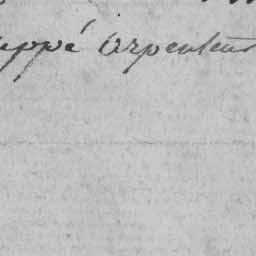 uppé Arpenteur